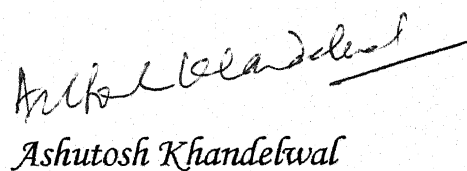 Ashutosh Khandelwal
Ashutosh Khandelwal